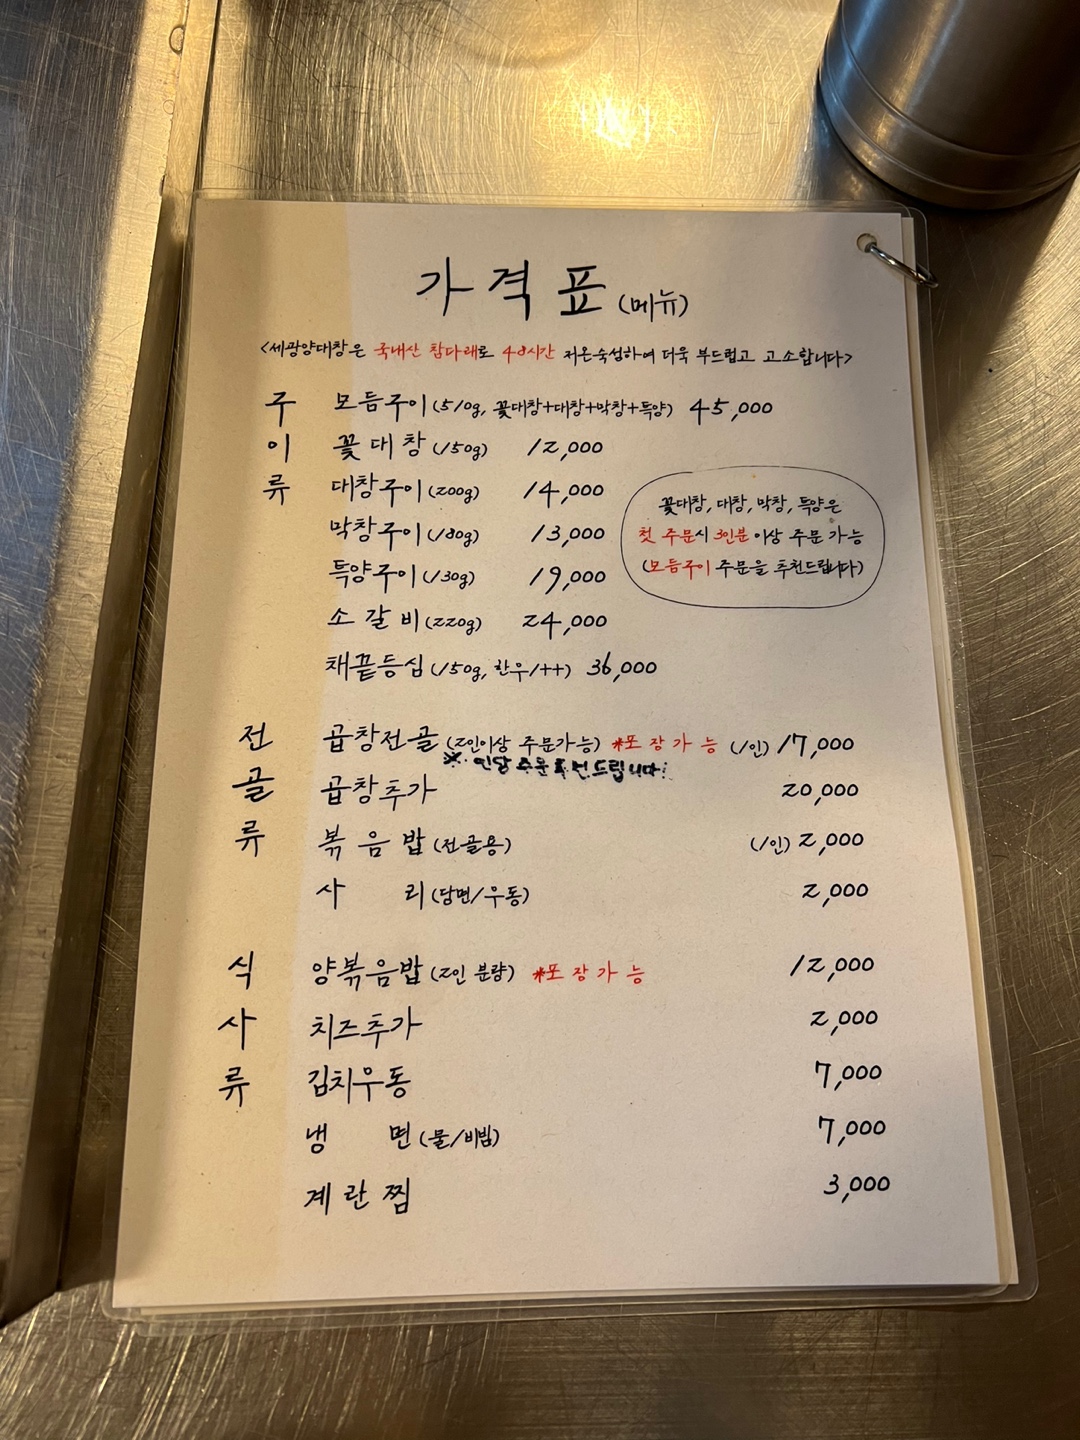 가격표 (메뉴)
<세광양대창은 국내산 참다래로 48시간 저온숙성하여 더욱 부드럽고 고소합니다>
구 모듬구이 (510g, 꽃대창+대창+막창+특양) 45,000
이 꽃대창 (150g) 12,000
류 대창구이 (200g) 14,000
막창구이 (180g) 13,000
특양구이 (130g) 19,000
소갈비 (220g) 24,000
채끝등심 (150g, 한우/++) 36,000
꽃대창, 대창, 막창, 특양은
첫 주문시 3인분 이상 주문 가능
(모듬구이 주문을 추천드립니다)
전 곱창전골 (2인이상 주문가능) *포장가능 (1인) 17,000
※ 인당 주문 추천드립니다!
골 곱창추가 20,000
류 볶음밥 (전골용) (1인) 2,000
사리 (당면/우동) 2,000
식 양볶음밥 (2인 분량) *포장가능 12,000
사 치즈추가 2,000
류 김치우동 7,000
냉면 (물/비빔) 7,000
계란찜 3,000